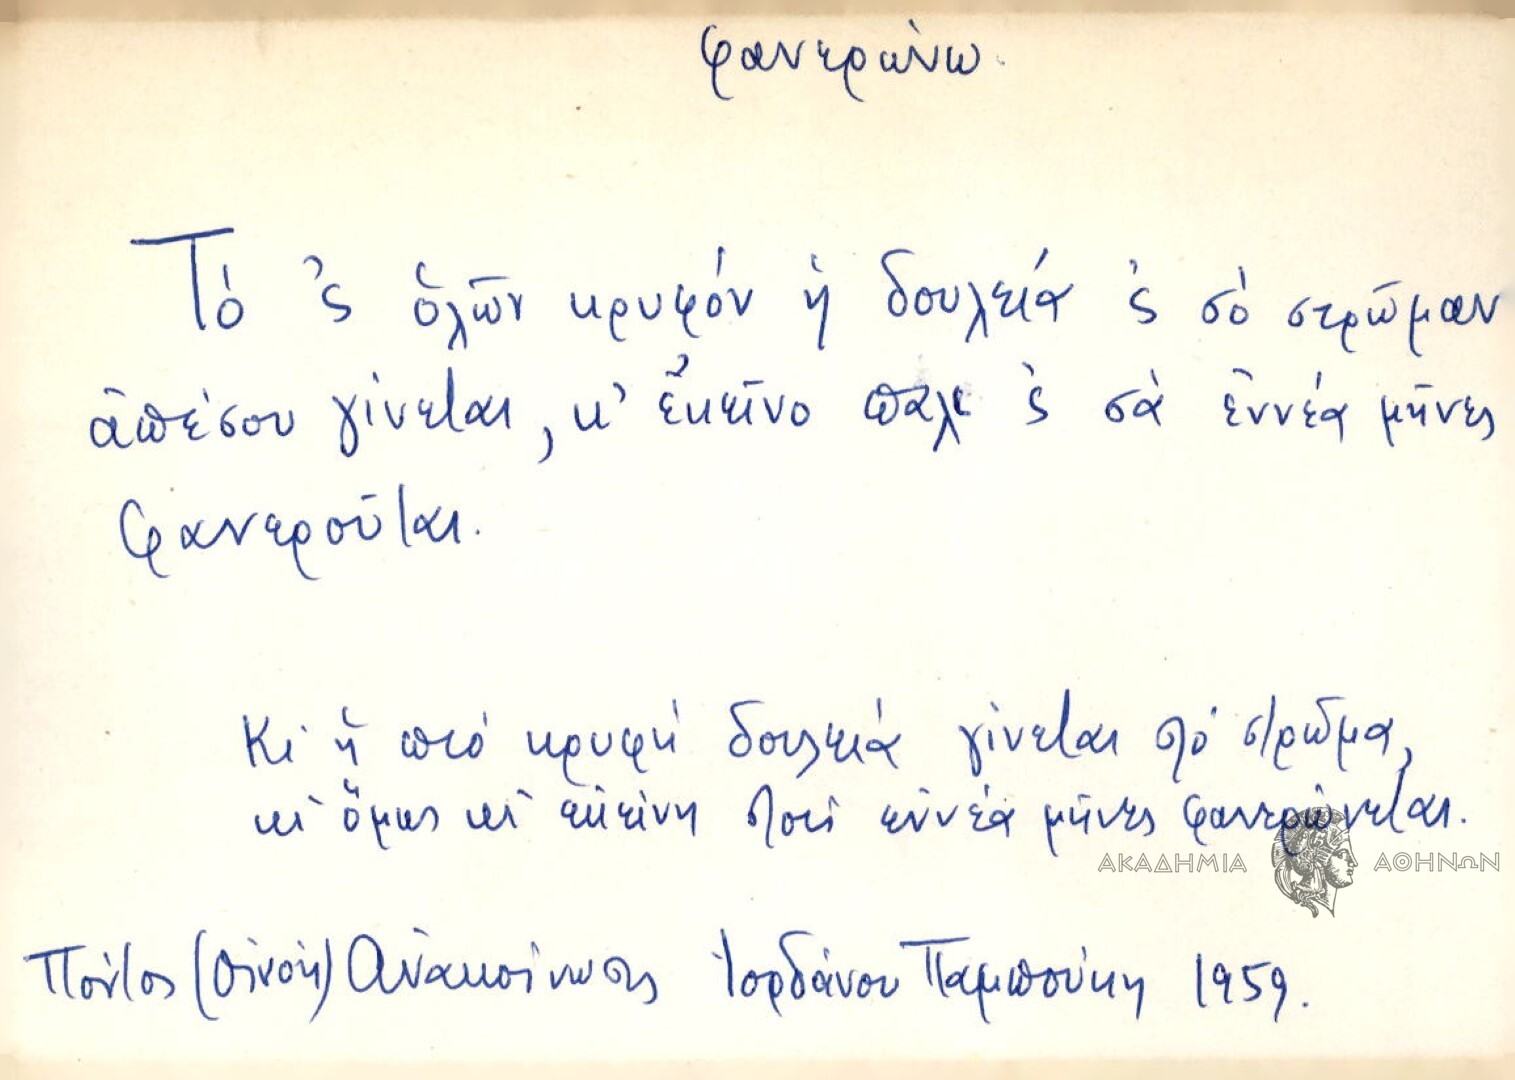 φανερώνω.
Τό 'ς ὅλῶν κρυφόν ἡ δουλειά 'ς σό στρῶμαν
ἀπέσου γίνεται, κ' ἐκεῖνο πάλι 'ς σά ἐννέα μῆνες
φανεροῦται.
Κι ἡ πιό κρυφή δουλειά γίνεται στό στρῶμα,
κι ὅμως κι ἐκείνη στούς ἐννέα μῆνες φανερώνεται.
ΑΚΑΔΗΜΙΑ ΑΘΗΝΩΝ
Πόντος (Οἰνόη) Ἀνακοίνωσις Ἰορδάνου Παμπούκη 1959.